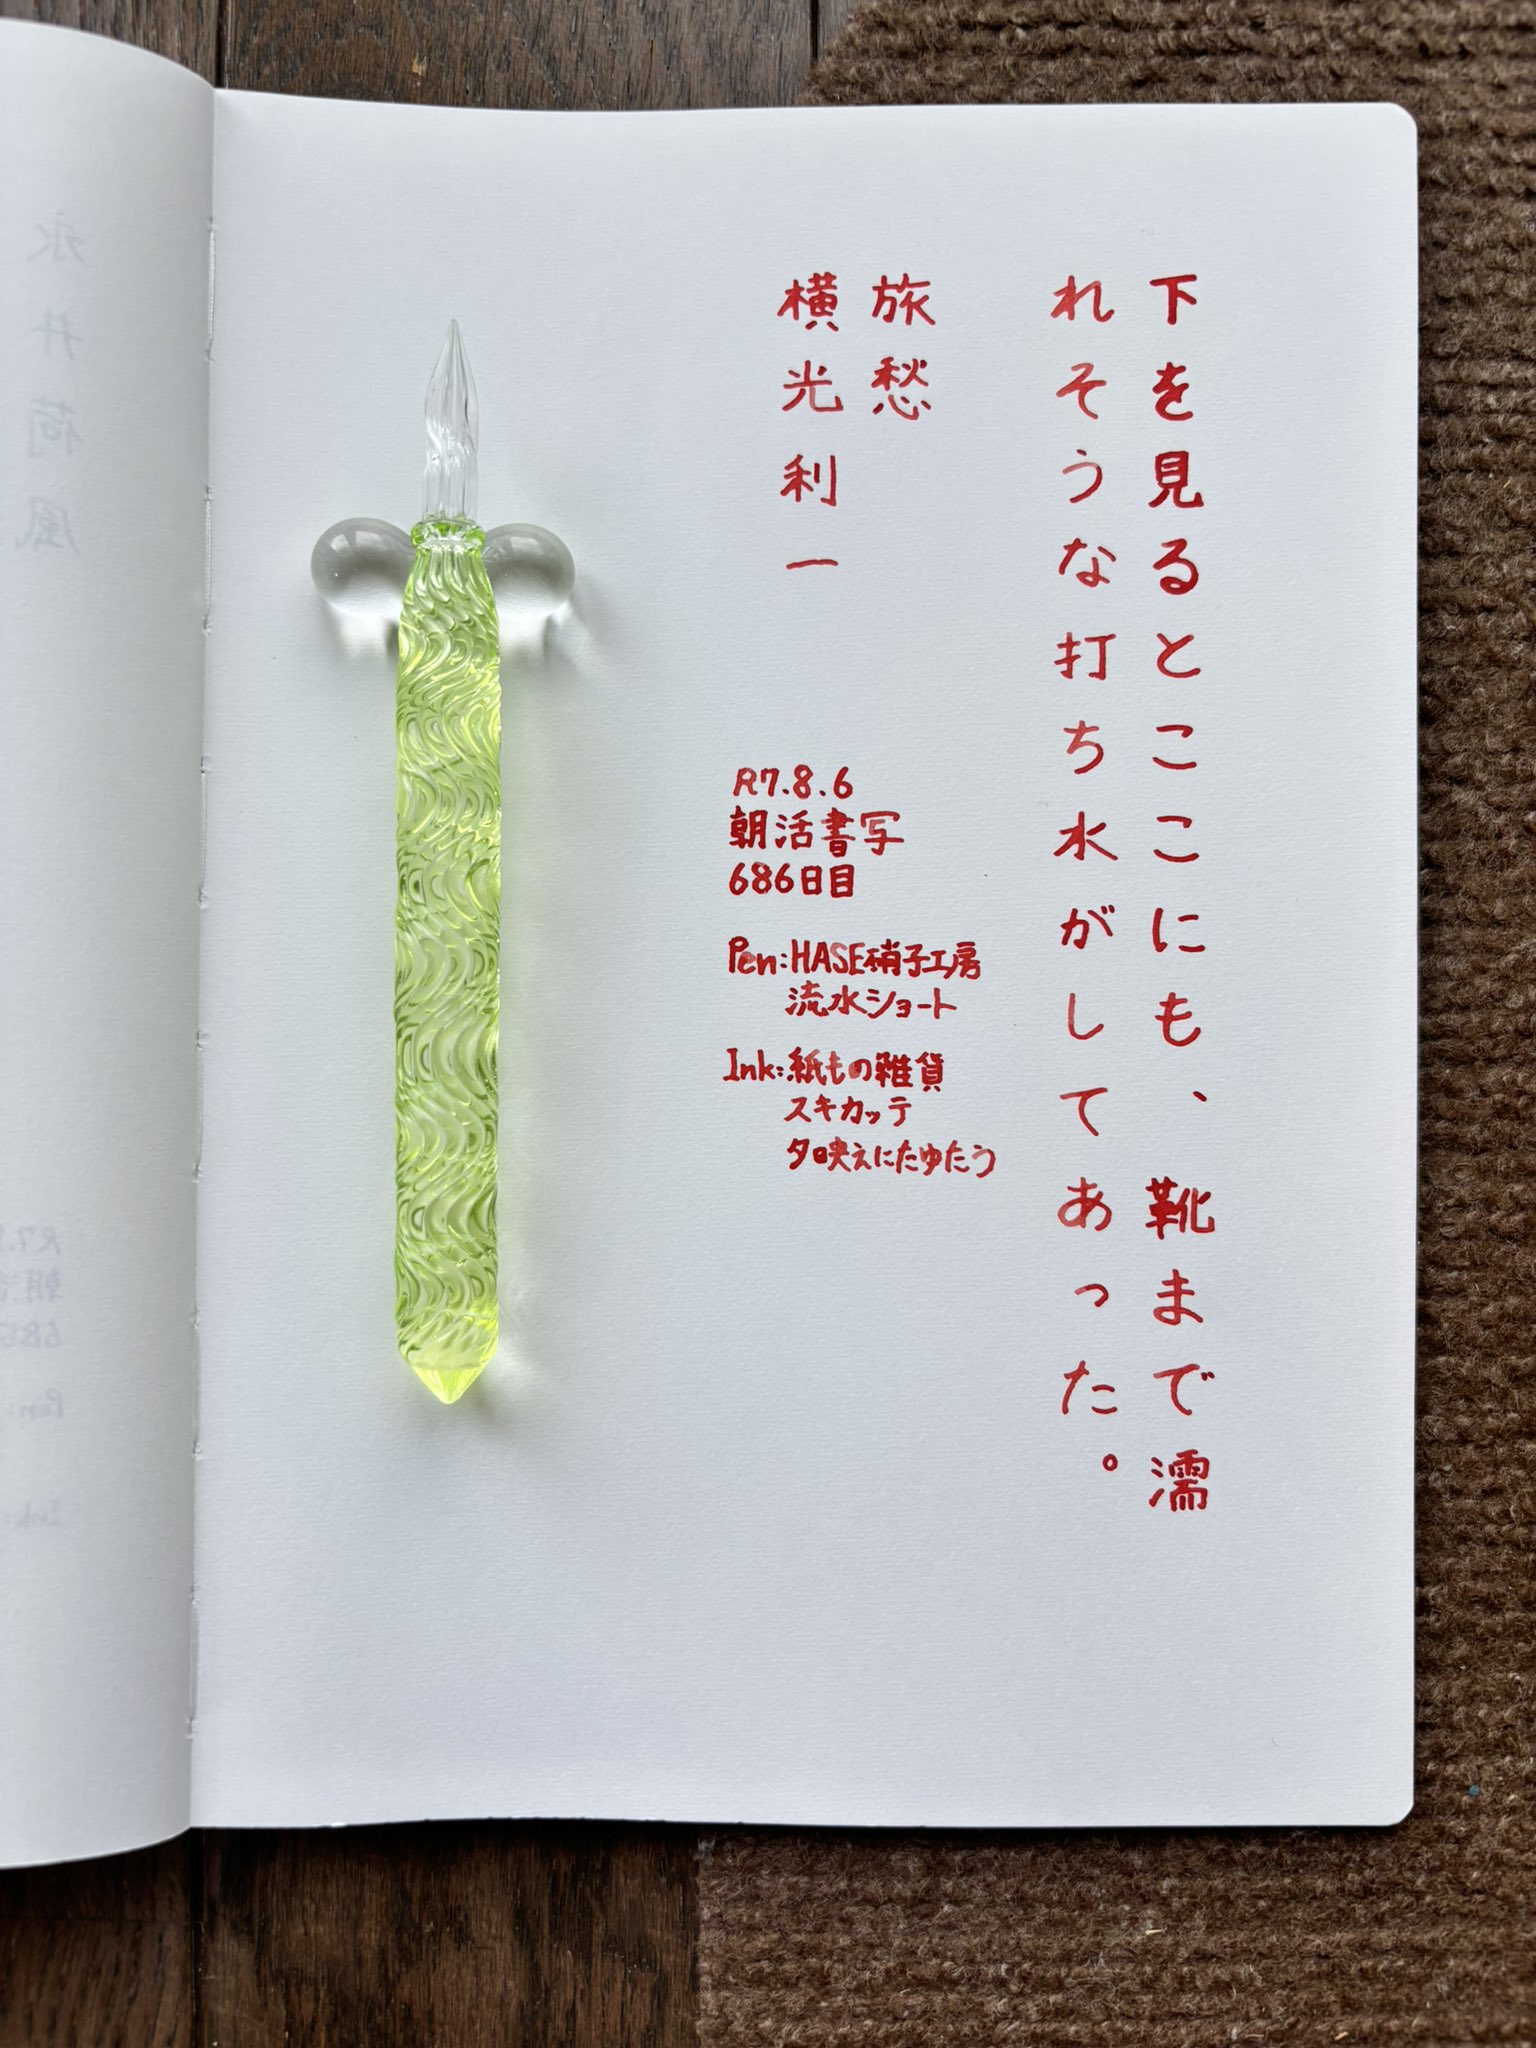 下を見るとここにも、靴まで濡
れそうな打ち水がしてあった。
旅愁
横光利一
R7.8.6
朝活書写
686日目
Pen:HASE硝子工房
流水ショート
Ink:紙もの雑貨
スキカッテ
夕映えにたゆたう
永井荷風